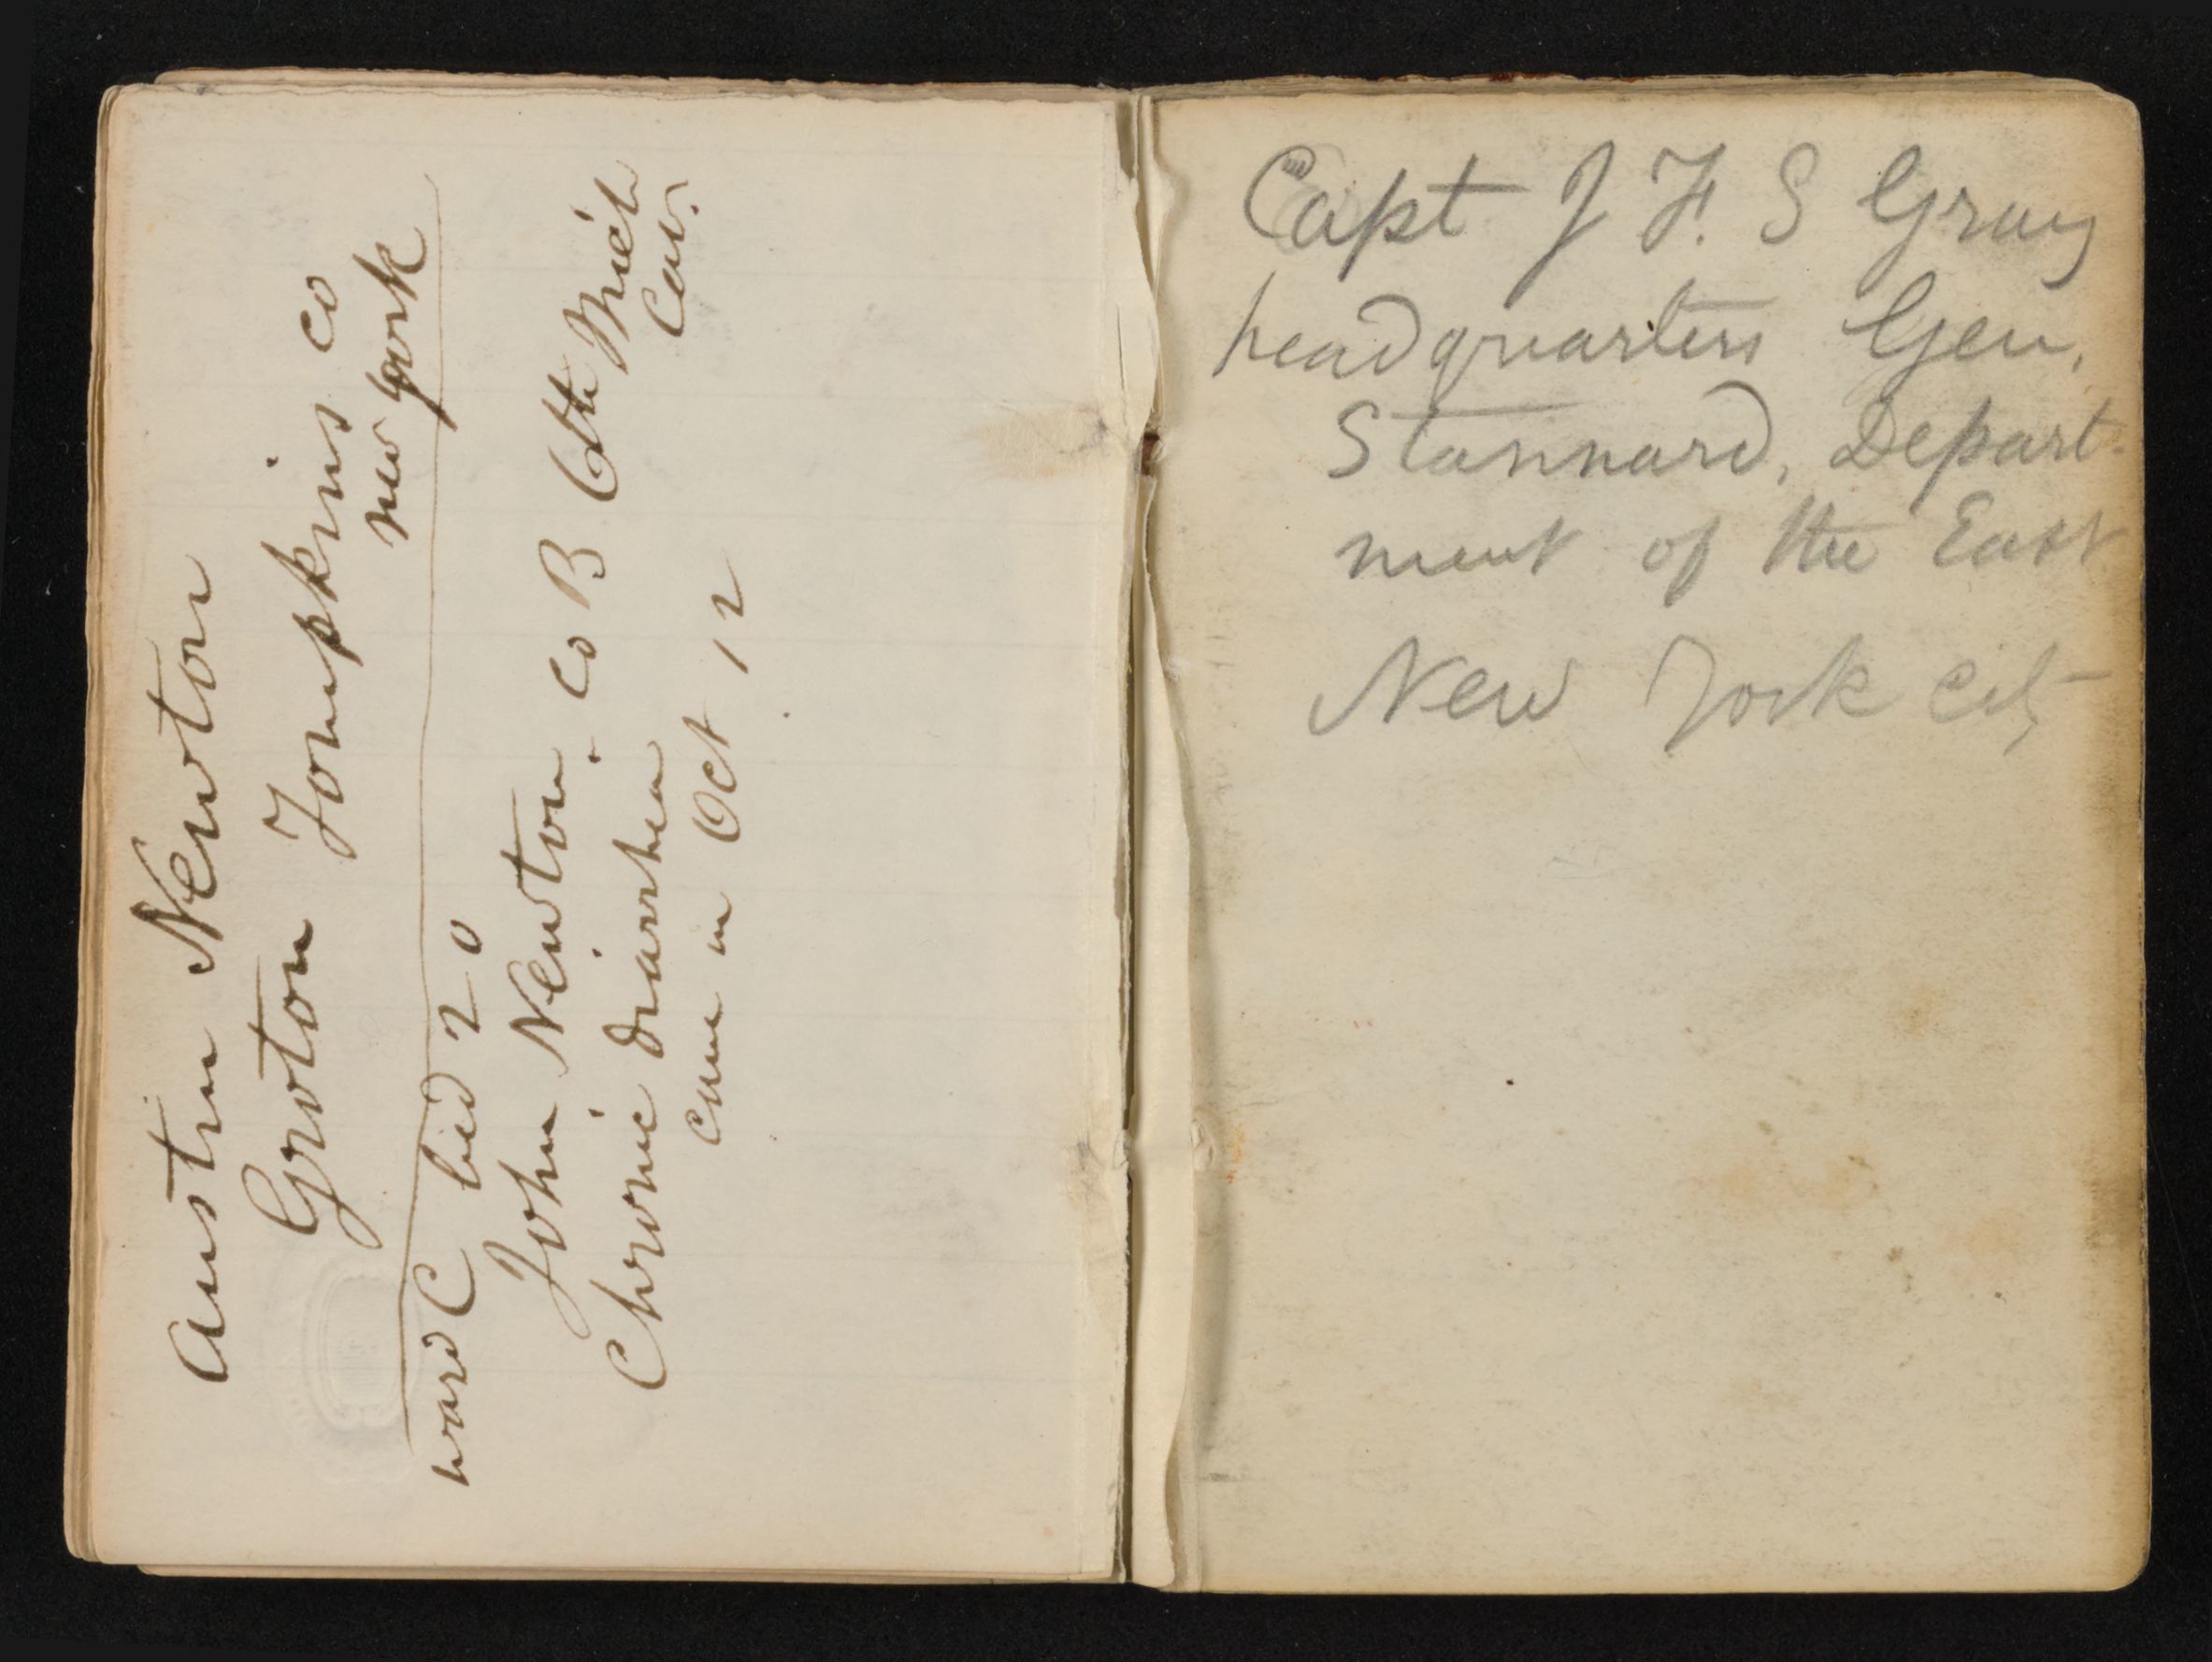 Austin Newton
Groton Tompkins co
new york
ward C bed 20
John Newton. co B 6th Mich
Cav.
Chronic diarrhea
came in Oct 12
Capt J. F. S Gray
headquarters Gen.
Stannard, Depart-
ment of the East
New York city